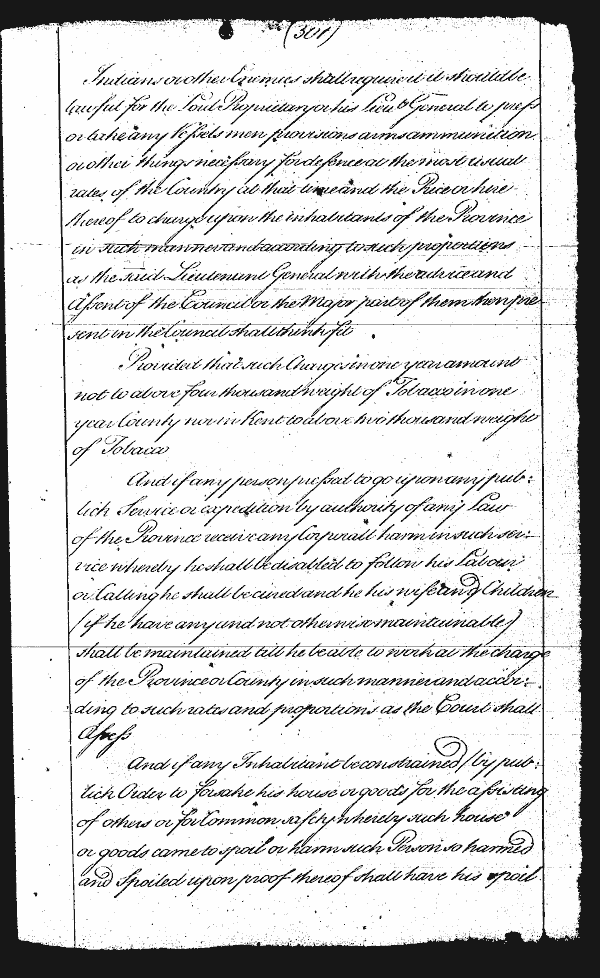 (301)
Indians or other Enemies shall require it it should be
lawful for the Lord Proprietary or his Lieut General to press
or take any Vessels men provisions arms ammunition
or other things necessary for defence at the most usual
rates of the Country at that time and the Price or hire
thereof to charge upon the inhabitants of the Province
in such manner and according to such proportions
as the said Lieutenant General with the advice and
Assent of the Council or the Major part of them then pre
sent in the Council shall think fit
Provided that such Charges in one year amount
not to above four thousand weight of Tobacco in one
year County nor in Kent to above two thousand weight
of Tobacco
And if any person pressed to go upon any pub:
lick Service or expedition by authority of any Law
of the Province receive any Corporall harm in such ser:
vice whereby he shall be disabled to follow his Labour
or Calling he shall be cured and he his wife and Children
(if he have any and not otherwise maintainable)
shall be maintained till he be able to work at the charge
of the Province or County in such manner and accor:
ding to such rates and proportions as the Court shall
Assess
And if any Inhabitant be constrained by pub:
lick Order to forsake his house or goods for the assisting
of others or for Common safety whereby such house
or goods came to spoil or harm such Person so harmed
and Spoiled upon proof thereof shall have his spoil